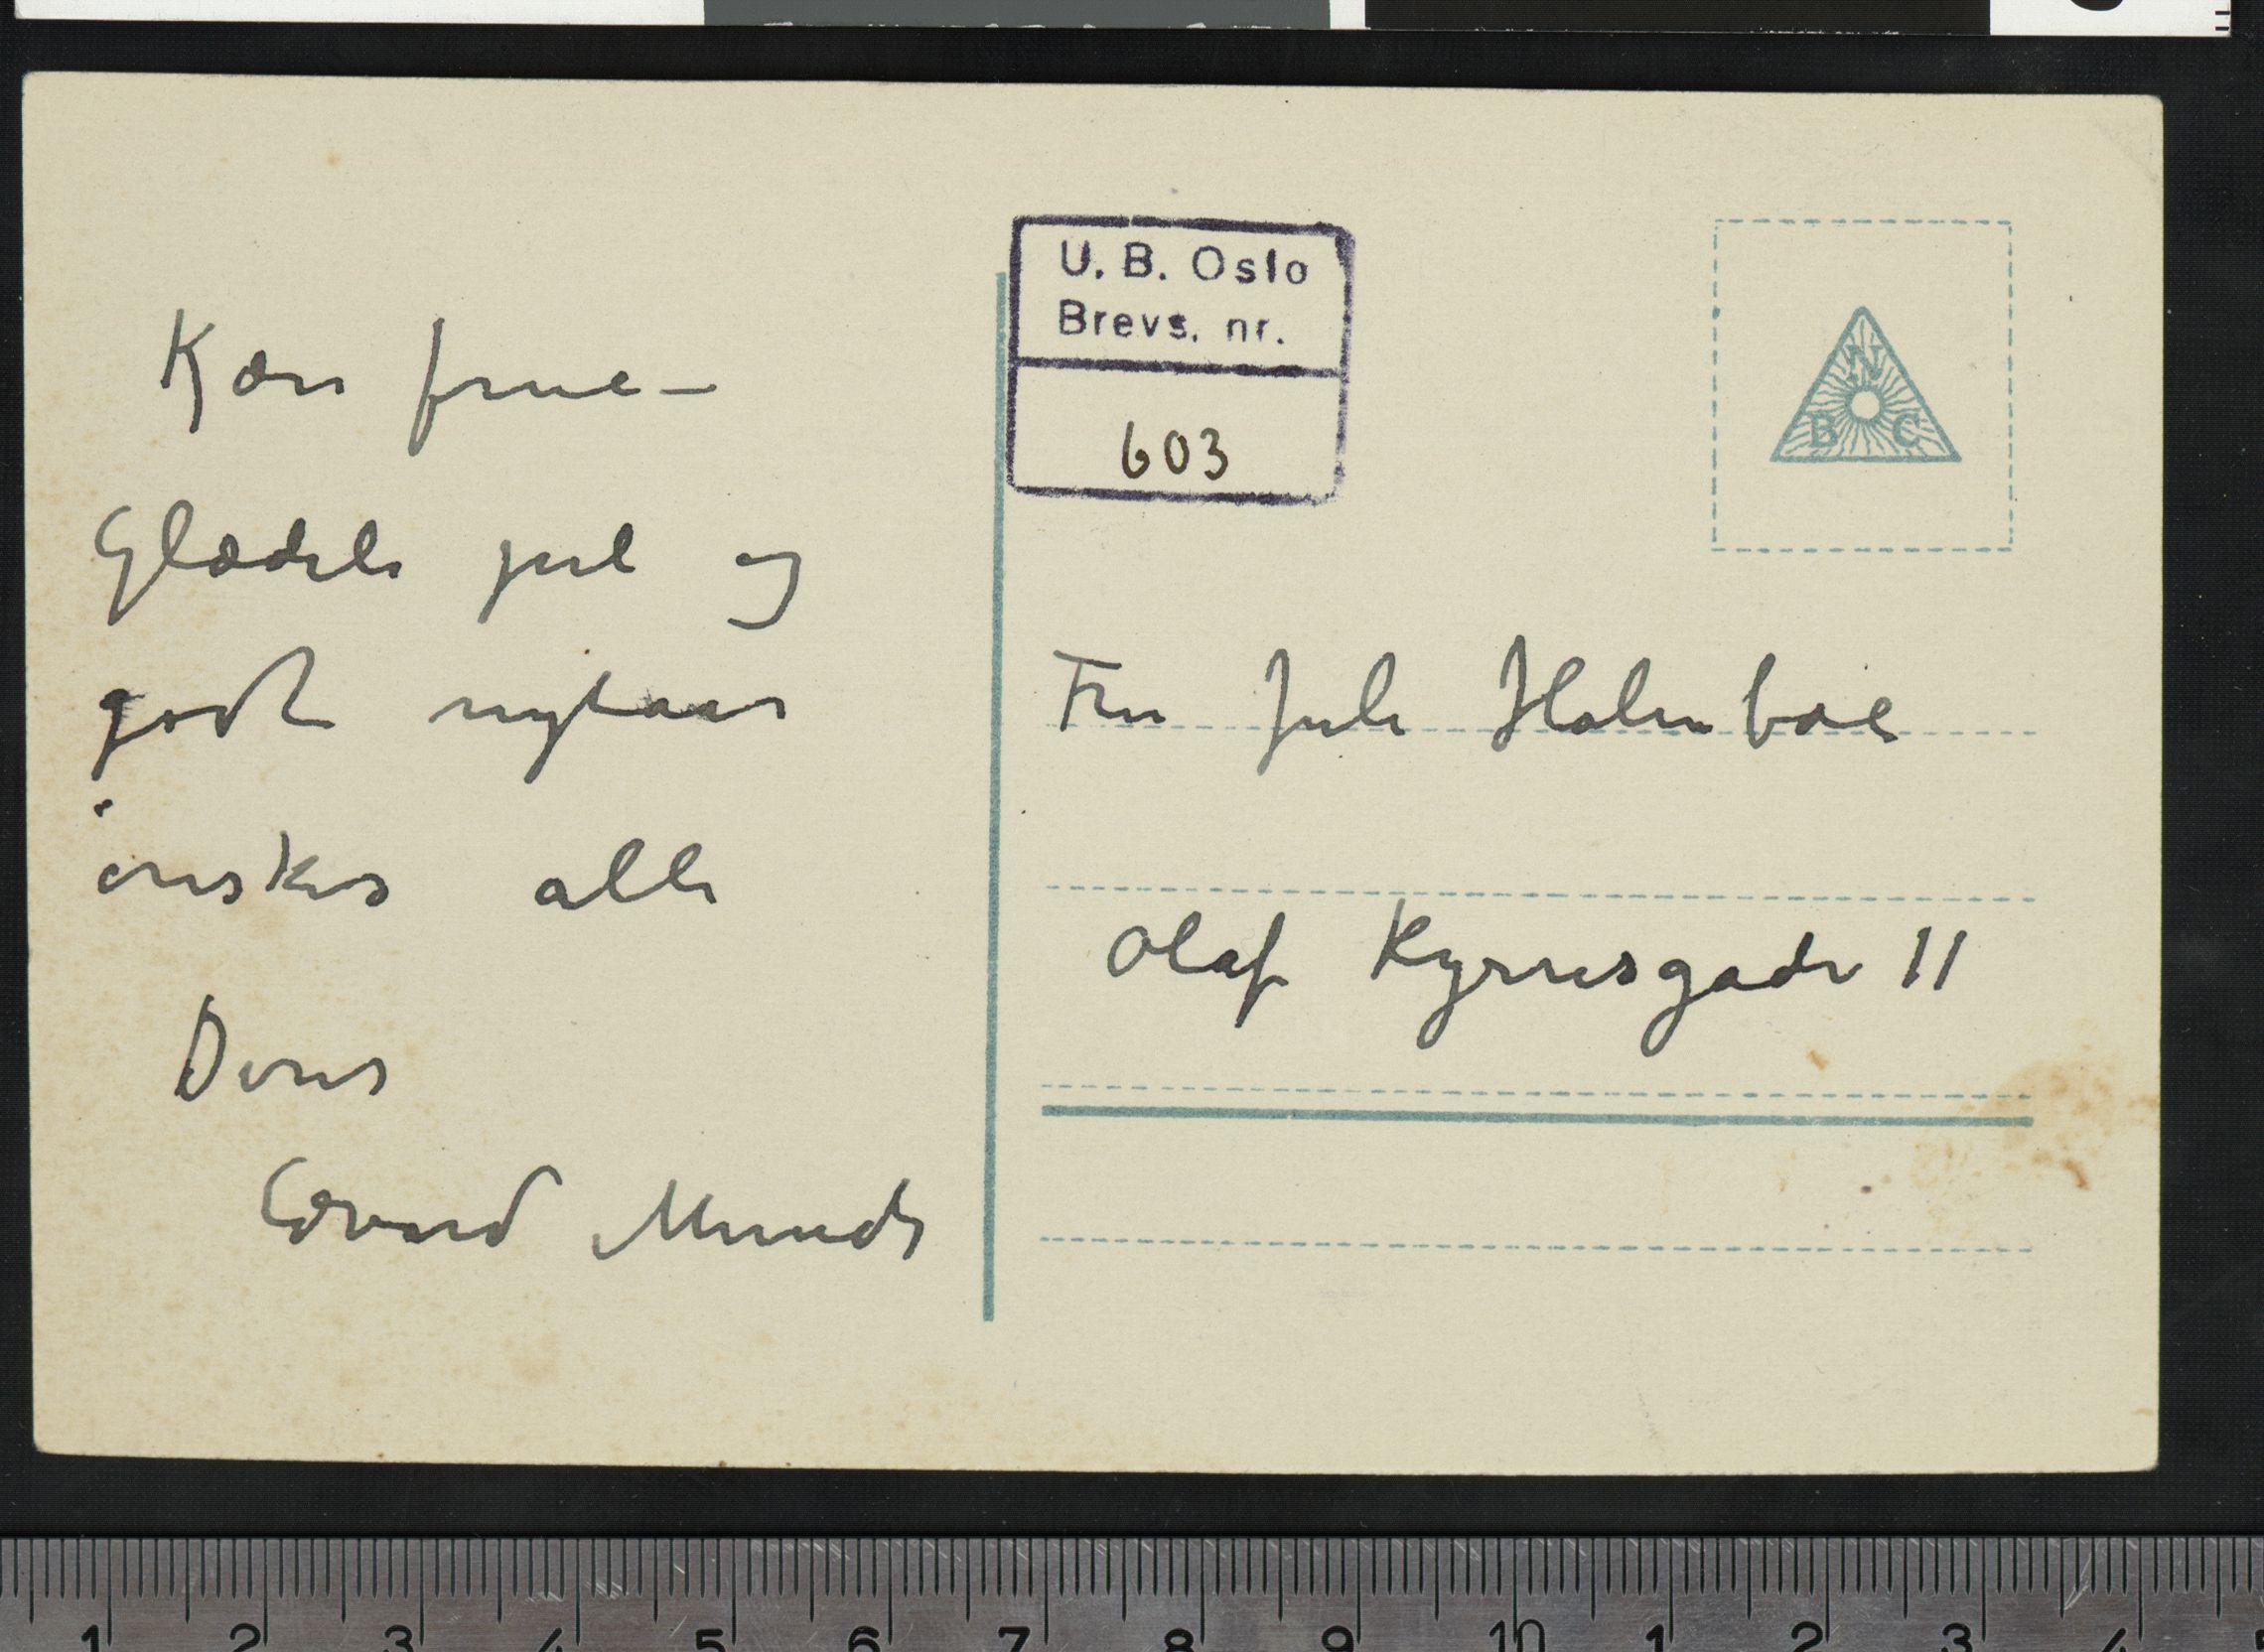 Kære frue –
Glædeli jul og
godt nytaar
ønskes alle
Deres
Edvard Munch
U. B. Oslo
Brevs. nr.
603
N
B C
Fru Juli Holmboe
Olaf Kyrresgade 11
1 2 3 4 5 6 7 8 9 10 1 2 3 4